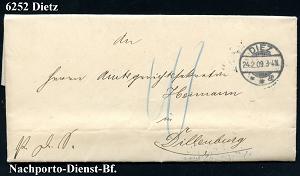 6252 Dietz
An
DIEZ
24.2.09.3-4N.
Herrn Amtsgerichtssekretär
Heimann
in
Dillenburg
Nachporto-Dienst-Bf.